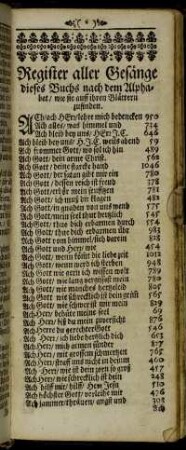 Register aller Gesänge
dieses Buchs nach dem Alpha-
bet/ wie sie auff ihren Blättern
zufinden.
ACh ach HErr lehre mich bedencken 950
Ach alles/ was himmel und 724
Ach bleib bey uns/ HErr J. C. 646
Ach bleib bey uns/ H. J. C. weils abend 59
Ach frommer Gott/ wo sol ich hin 489
Ach Gott dein arme Christ. 561
Ach Gott/ deine starcke hand 1046
Ach Gott/ der satan gibt mir ein 780
Ach Gott/ dessen reich ist freud 178
Ach Gott/ erhör mein seufftzen 731
Ach Gott/ gib du uns deine gnad
Ach Gott/ in gnaden von uns wend 575
Ach Gott/ mein seel that betrübet
Ach Gott/ thue dich erbarmen durch 554
Ach Gott thue dich erbarmen üb. 983
Ach Gott vom himmel/ sieh darein 828
Ach Gott und Herr/ wie 454
Ach Gott/ wenn tröst die liebe zeit 1018
Ach Gott/ wenn werd ich sterben 948
Ach Gott wie
Ach Gott/ wie lang vergissest mein 760
Ach Gott/ wie manches hertzeleid 481
Ach Gott/ wie schrecklich ist dein grim 565
Ach Gott/ wie schwer ist uns mein 809
Ach Herr/ behüte meine seel 69
Ach Herr/ biß du mein zuversicht 876
Ach Herre du gerechter Gott 546
Ach HErr/ ich liebe hertzlich dich 653
Ach HErr/ mich armen sünder 817
Ach HErr/ mit grossem schmertzen 765
Ach HErr/ straff uns nicht in deinem 460
Ach HErr/ wie ist dein zorn so groß 457
Ach HErr/ wie schrecklich ist dein 348
Ach hilff mir/ hilff/ HErr Jesu 510
Ach höchster Gott/ verleihe mir 476
Ach jammer/ threnen/ angst und 303
Ach